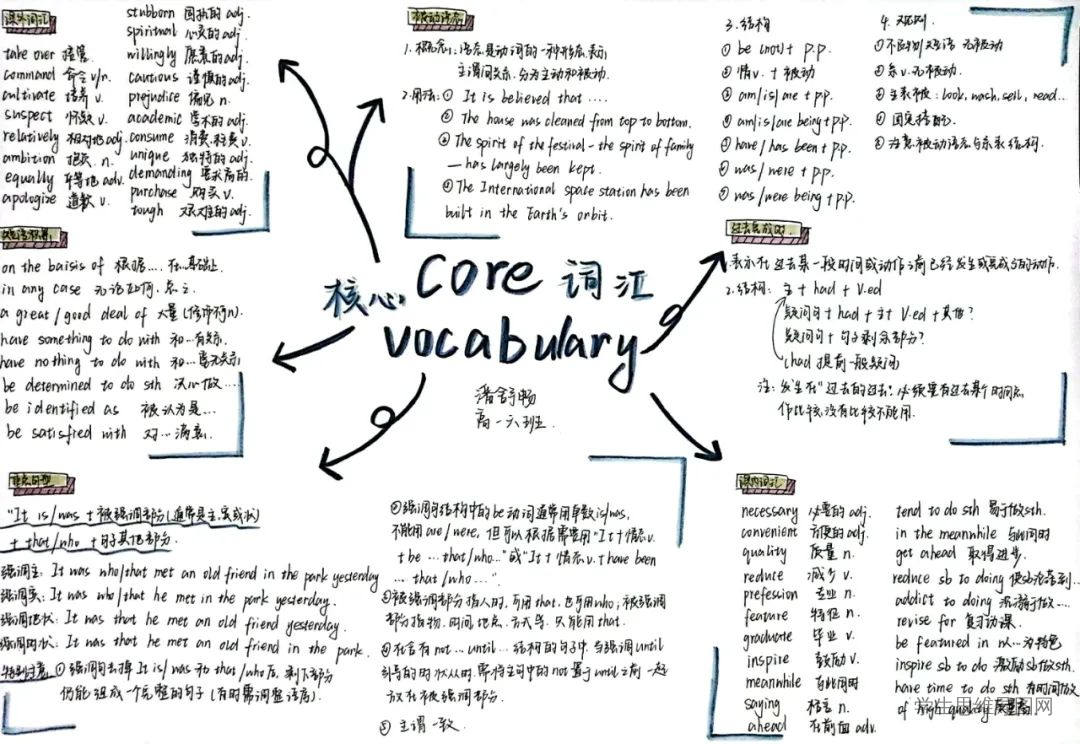 课外词汇
take over 接管
command 命令 v/n.
cultivate 培养 v.
suspect 怀疑 v.
relatively 相对地 adj.
ambition 抱负. n.
equally 平等地 adv.
apologize 道歉 v.
stubborn 固执的 adj.
spiritual 心灵的 adj.
willingly 愿意的 adj.
cautious 谨慎的 adj.
prejudice 偏见 n.
academic 学术的 adj.
consume 消费.耗费 v.
unique 独特的 adj.
demanding 要求高的.
purchase 购买 v.
tough 艰难的 adj.
被动语态
1. 概念: 语态是动词的一种形态,表示
主谓间关系.分为主动和被动.
2. 用法: ① It is believed that ....
② The house was cleaned from top to bottom.
③ The spirit of the festival - the spirit of family
— has largely been kept.
④ The International space station has been
built in the Earth's orbit.
3. 结构
① be (not) + p.p.
② 情v. + 被动
③ am/is/are + p.p.
④ am/is/are being + p.p.
⑤ have/has been + p.p.
⑥ was/were + p.p.
⑦ was/were being + p.p.
4. 规则
② 系v.无被动.
③ 主表被: look, wash, sell, read...
④ 固定搭配.
核心 core 词汇
vocabulary
潘舒畅
高一六班.
on the baisis of 根据.... 在...基础上
in any case 无论如何.总之.
a great/good deal of 大量(修饰不可n).
have something to do with 和...有关系.
have nothing to do with 和...毫无关系
be determined to do sth 决心做...
be identified as 被认为是...
be satisfied with 对...满意.
过去完成时.
表示在过去某一段时间或动作之前已经发生或完成了的动作.
2. 结构: 主 + had + V.ed
疑问词 + had + 主 + V.ed + 其他?
疑问词 + 句子剩余部分?
(had 提前 一般疑问
注: 发生在"过去的过去".必须要有过去某个时间点
作比较,没有比较不能用.
重点句型
"It is/was + 被强调部分(通常是主,宾或状)
+ that/who + 句子其他部分.
强调主: It was who/that met an old friend in the park yesterday
强调宾: It was who/that he met in the park yesterday.
强调地状: It was that he met an old friend yesterday.
强调时状: It was that he met an old friend in the park.
特别注意 ① 强调句去掉It is/was和that/who后,剩下部分
仍能组成一个完整的句子(有时需调整语序).
② 强调句结构中的be动词通常用单数is/was,
不能用are/were,但可以根据需要用"It + 情态v.
+ be ... that/who..."或"It + 情态v. + have been
... that/who ...".
③ 被强调部分指人时,可用that,也可用who;被强调
部分指物.时间.地点.方式等.只能用that.
④ 在含有not...until...结构的句子中,当强调until
引导的时状从时.需将主句中的not置于until之前一起
放在被强调部分.
⑤ 主谓一致.
课内词汇
necessary 必要的 adj.
convenient 方便的 adj.
quality 质量 n.
reduce 减少 v.
prefession 专业 n.
feature 特征 n.
graduate 毕业 v.
inspire 鼓励 v.
meanwhile 与此同时
saying 格言 n.
ahead 在前面 adv.
tend to do sth 易于做sth.
in the meanwhile 与此同时
get ahead 取得进步.
reduce sb to doing 使sb沦落到...
addict to doing 沉溺于做...
revise for 复习功课.
be featured in 以...为特色
inspire sb to do 激励sb做sth.
have time to do sth 有时间做
of high quality 质量高
学生思维导图网